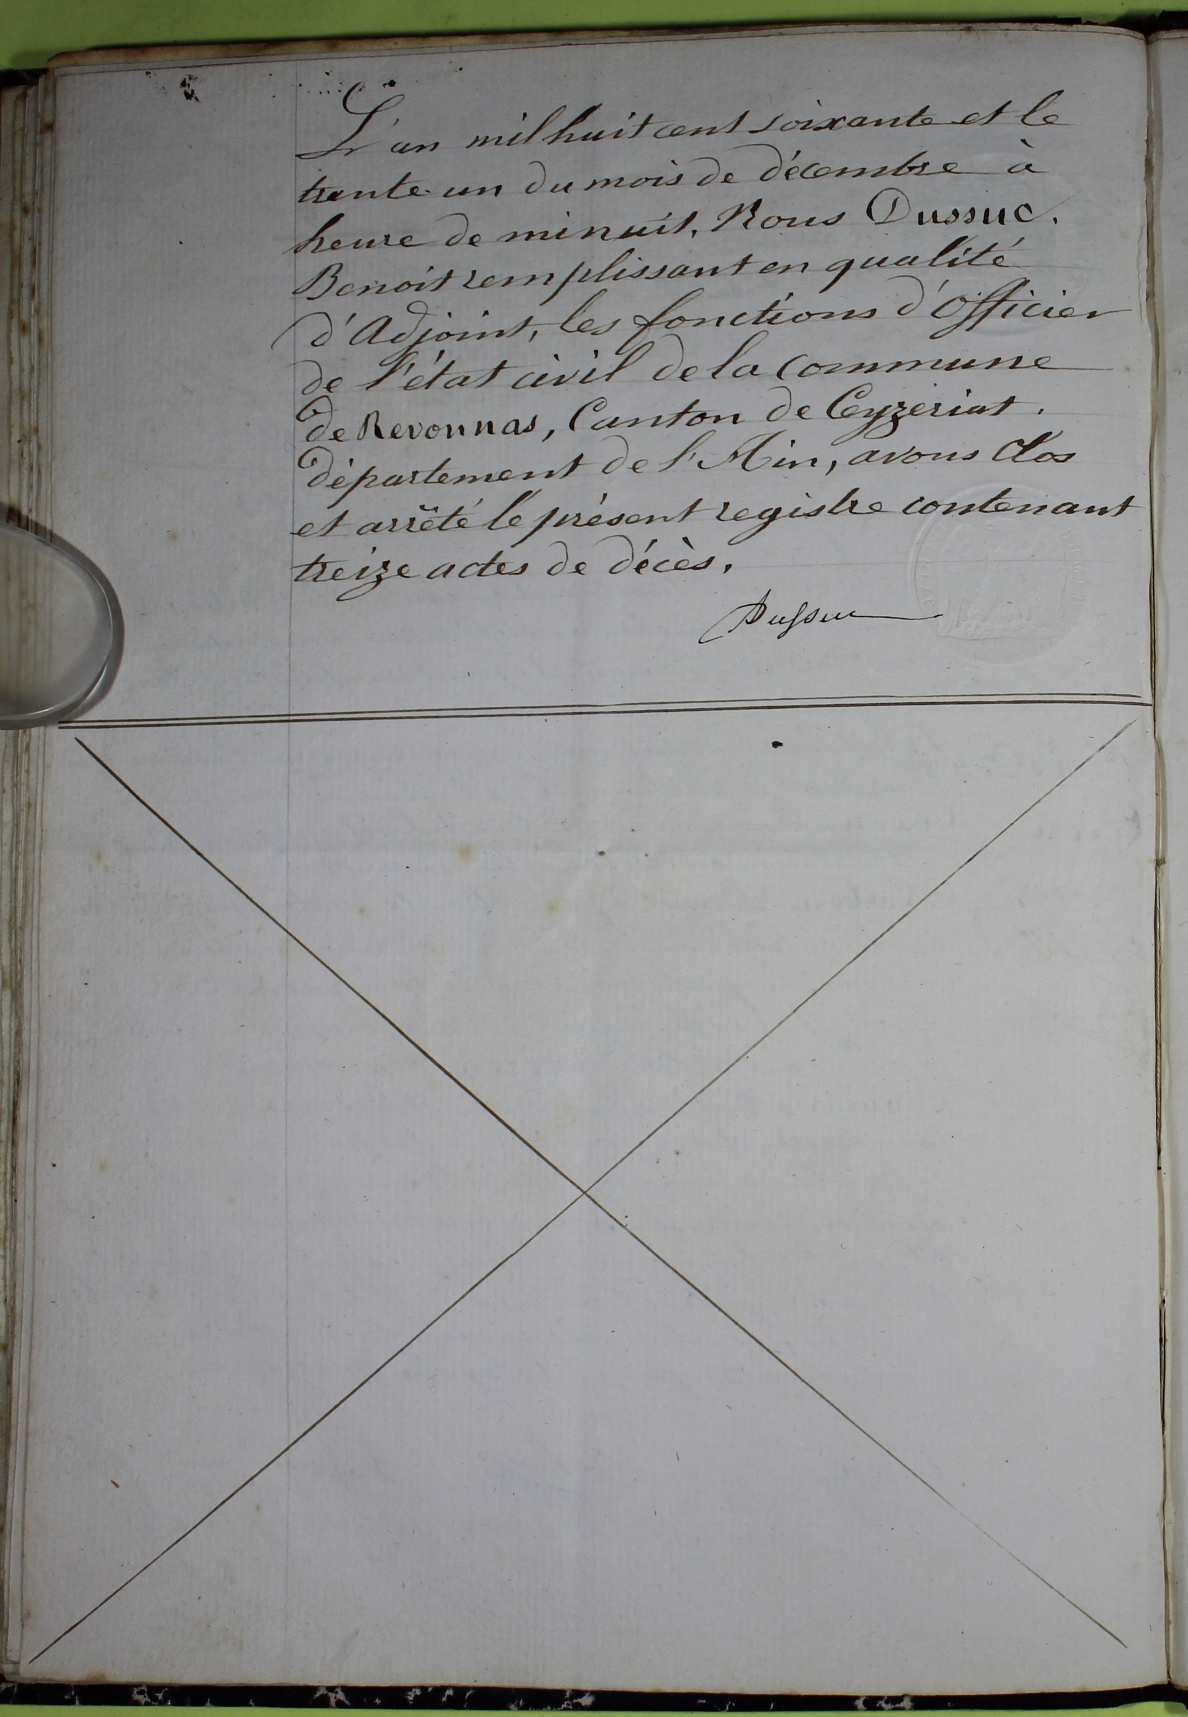 L'an mil huit cent soixante et le
trente-un du mois de décembre à
heure de minuit, Nous Dussuc.
Benoit remplissant en qualité
d'Adjoint, les fonctions d'Officier
de l'état civil de la commune
de Revonnas, Canton de Ceyzeriat.
département de l'Ain, avons Clos
et arrêté le présent registre contenant
treize actes de décès.
Dussuc